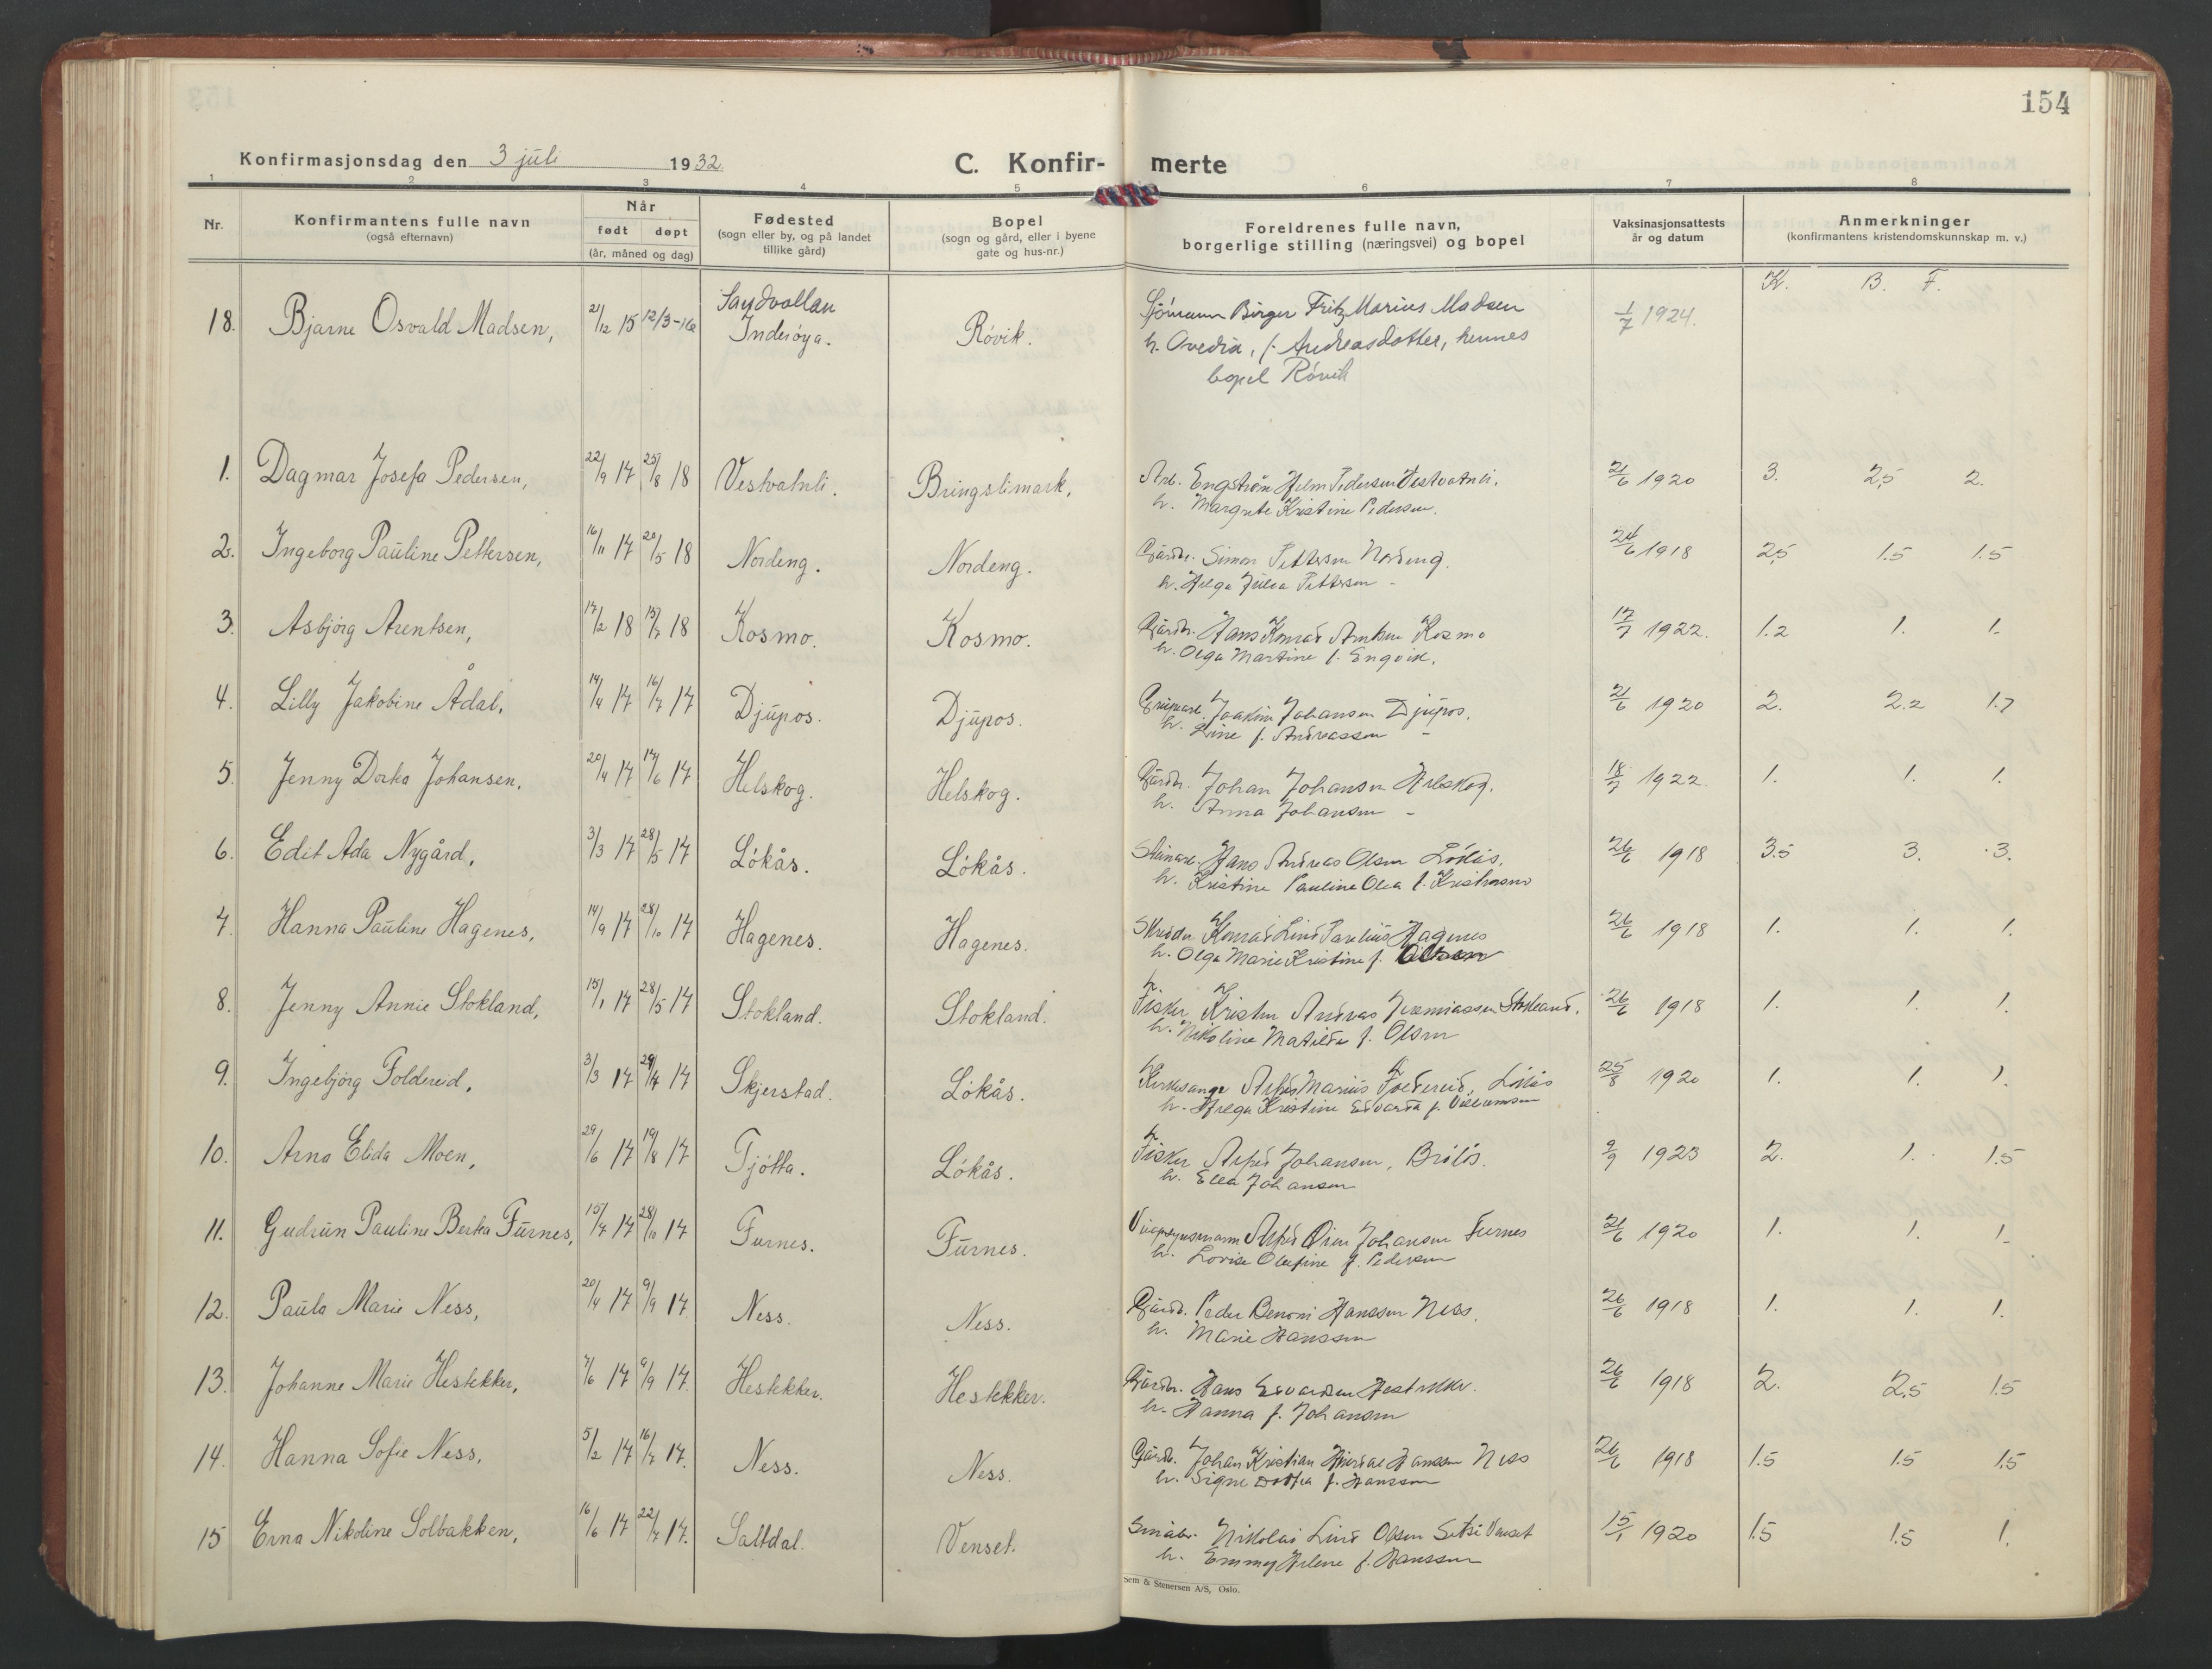 154
Konfirmasjonsdag den 3 juli 1932.
C. Konfir- merte
1 2 3 4 5 6 7 8
Nr.
Konfirmantens fulle navn
(også efternavn)
Når
født døpt
(år, måned og dag)
Fødested
(sogn eller by, og på landet
tillike gård)
Bopel
(sogn og gård, eller i byene
gate og hus-nr.)
Foreldrenes fulle navn,
borgerlige stilling (næringsvei) og bopel
Vaksinasjonsattests
år og datum
Anmerkninger
(konfirmantens kristendomskunnskap m. v.)
K. B. F.
18. Bjarne Osvald Madsen, 21/12 15 12/3-16 Sandvollan Inderöya. Rövik. Sjömann Birger Fritz Marius Madsen 1/7 1924.
h. Ovedia, f. Andreasdotter, hennes
bopel Rövik
1. Dagmar Josefa Pedersen, 22/9 17 25/8 18 Vestvatnli. Bringslimark. Arb. Engström Helm Pedersen Vestvatnli. 21/6 1920 3. 2,5 2.
h. Margrete Kristine Pedersen.
2. Ingeborg Pauline Pettersen, 16/11 17 20/5 18 Nordeng. Nordeng. Gårdbr. Simon Pettersen Nordeng. 24/6 1918 2,5 1.5 1.5
h. Helga Julea Pettersen -
3. Asbjörg Arentsen, 17/2 18 15/7 18 Kosmo. Kosmo. Gårdbr. Hans Konrad Arntsen Kosmo 17/7 1922. 1.2 1. 1.
h. Olga Martine f. Engvik.
4. Lilly Jakobine Ådal. 14/4 17 16/7 17 Djupos. Djupos. Joakim Johansen Djupos. 21/6 1920 2. 2.2 1.7
h. Line f. Andreassen -
5. Jenny Dorka Johansen. 20/4 17 17/6 17 Helskog. Helskog. Gårdbr. Johan Johansen Helskog. 18/7 1922. 1. 1. 1.
h. Anna Johansen -
6. Edit Ada Nygård, 3/3 17 28/5 17 Lökås. Lökås. Hans Andreas Olsen Lökås. 26/6 1918 3.5 3. 3.
h. Kristine Pauline Olea f. Kristensen
7. Hanna Pauline Hagenes, 14/9 17 28/10 17 Hagenes. Hagenes. Skredder Konrad Lind Parelius Hagenes 26/6 1918 1. 1. 1.
h. Olga Marie Kristine f. Olsen
8. Jenny Annie Stokland, 15/1 17 28/5 17 Stokland. Stokland. Fisker Kristen Andreas Jeremiassen Stokland. 26/6 1918 1. 1. 1.
h. Nikoline Matilde f. Olsen
9. Ingebjörg Foldereid, 3/3 17 29/4 17 Skjerstad. Lökås. Kirkesanger Alfred Marius Foldereid, Lökås 25/8 1920 1. 1. 1.
h. Helga Kristine Edvarda f. Villumsen
10. Arna Elida Moen, 29/6 17 19/8 17 Tjötta. Lökås. Fisker Alfred Johansen, 9/9 1923 2. 1. 1.5
h. Ella Johansen
11. Gudrun Pauline Berka Furnes, 15/7 17 28/10 17 Furnes. Furnes. Alfred Johansen Furnes 21/6 1920 1. 1. 1.
h. Lovise Olufine f. Pedersen
12. Paula Marie Ness, 20/4 17 9/9 17 Ness. Ness. Gårdb. Peder Benoni Hanssen Ness. 26/6 1918 1. 1. 1.
h. Marie Hanssen
13. Johanne Marie Hestekker, 7/6 17 9/9 17. Hestekker. Hestekker. Gårdbr. Hans Edvardsen Hestekker. 26/6 1918 2. 2,5 1.5
h. Hanna f. Johansen
14. Hanna Sofie Ness, 5/2 17 16/7 17. Ness. Ness. Gårdb. Johan Kristian Hanssen Ness 26/6 1918 1.5 1.5 1.5
h. Signe Dortea f. Hanssen
15 Erna Nikoline Solbakken, 16/6 17 22/7 17. Saltdal. Venset. Småbr. Nikolai Lind Olsen Venset 15/1 1920 1.5 1.5 1.
h. Emmy Helene f. Hanssen
Sem & Stenersen A/S, Oslo.